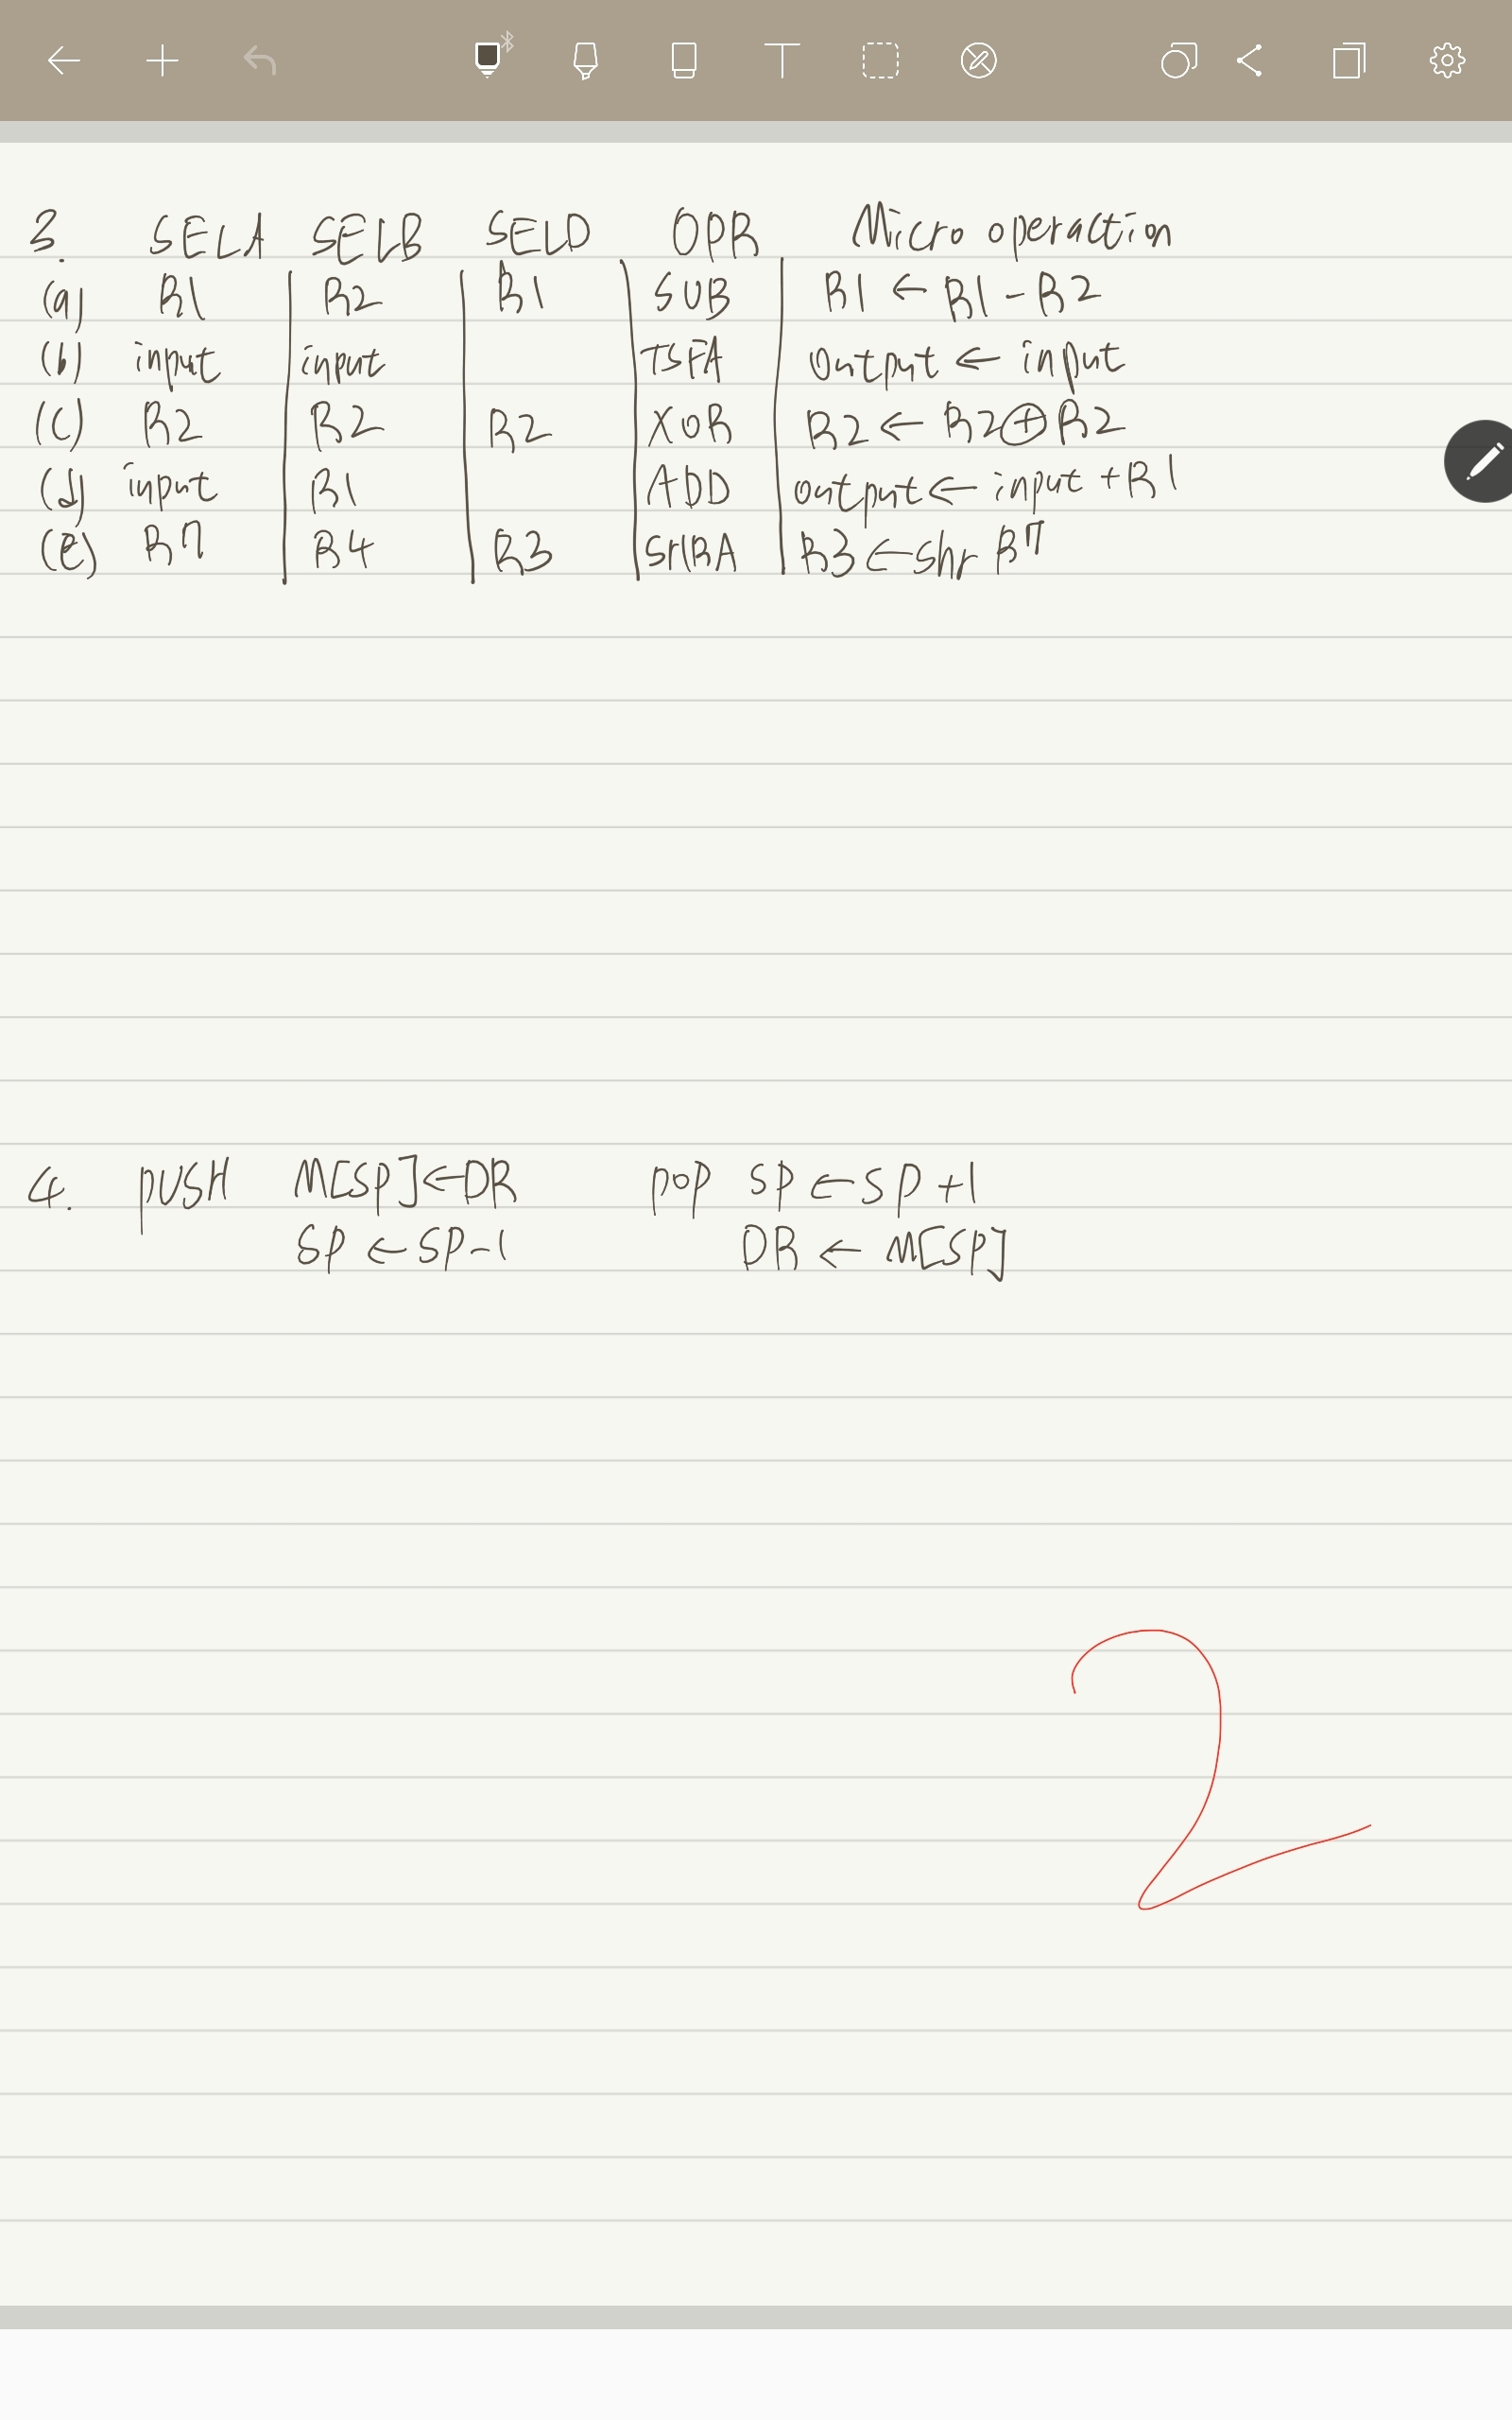 3. SELA SELB SELD OPR Micro operaction
(a) R1 R2 R1 SUB R1 ← R1 - R2
(b) input input TSFA Output ← input
(c) R2 R2 R2 XOR R2 ← R2 ⊕ R2
(d) input R1 ADD output ← input + R1
(e) R7 R4 R3 SHRA R3 ← shr R7
4. PUSH M[SP] ← DR pop SP ← SP + 1
SP ← SP - 1 DR ← M[SP]
2